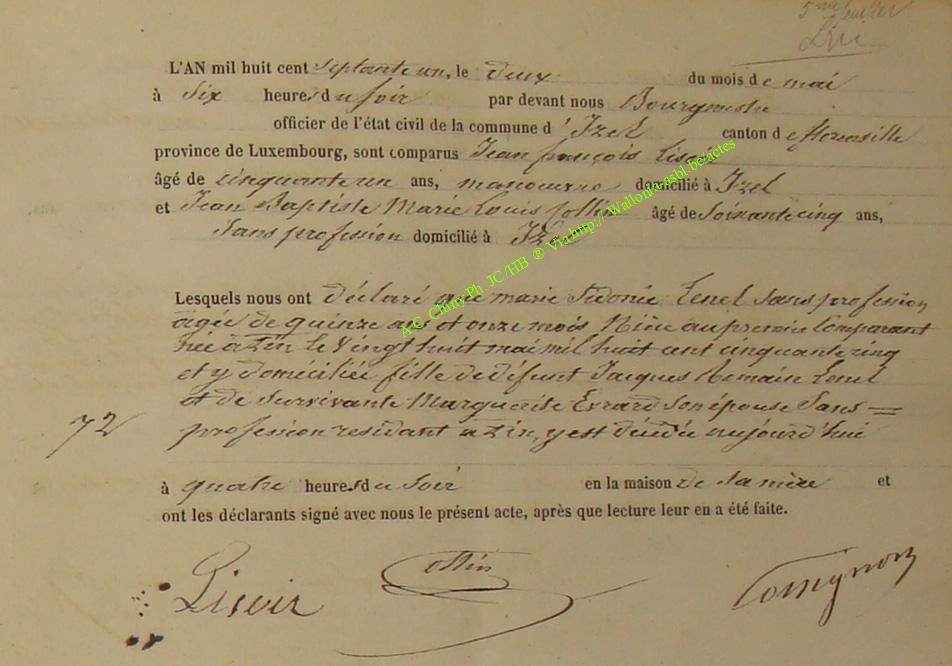 5me feuillet
L'AN mil huit cent septante un, le deux du mois de mai
à six heures du soir par devant nous Bourgmestre
officier de l'état civil de la commune d'Izel canton de florenville
province de Luxembourg, sont comparus Jean françois Lisoir
âgé de cinquante un ans, manoeuvre domicilié à Izel
et Jean Baptiste Marie Louis Collin âgé de Soixante cinq ans,
Sans profession domicilié à Izel
A.C. Chiny-Ph. JC/HB ® Via http://Wallonia-asbl.be-actes
Lesquels nous ont déclaré que marie Sidonie Lenel Sans profession,
agée de quinze ans et onze mois Nièce au premier Comparant
née à Izin le vingt huit mai mil huit cent cinquante cinq
et y domiciliée fille de défunt Jacques Lenel
et de Survivante Marguerite Evrard Son épouse Sans =
profession residant a Izin, y est décédée aujourd'hui
72
à quatre heures du Soir en la maison de Sa mère et
ont les déclarants signé avec nous le présent acte, après que lecture leur en a été faite.
Lisoir Collin